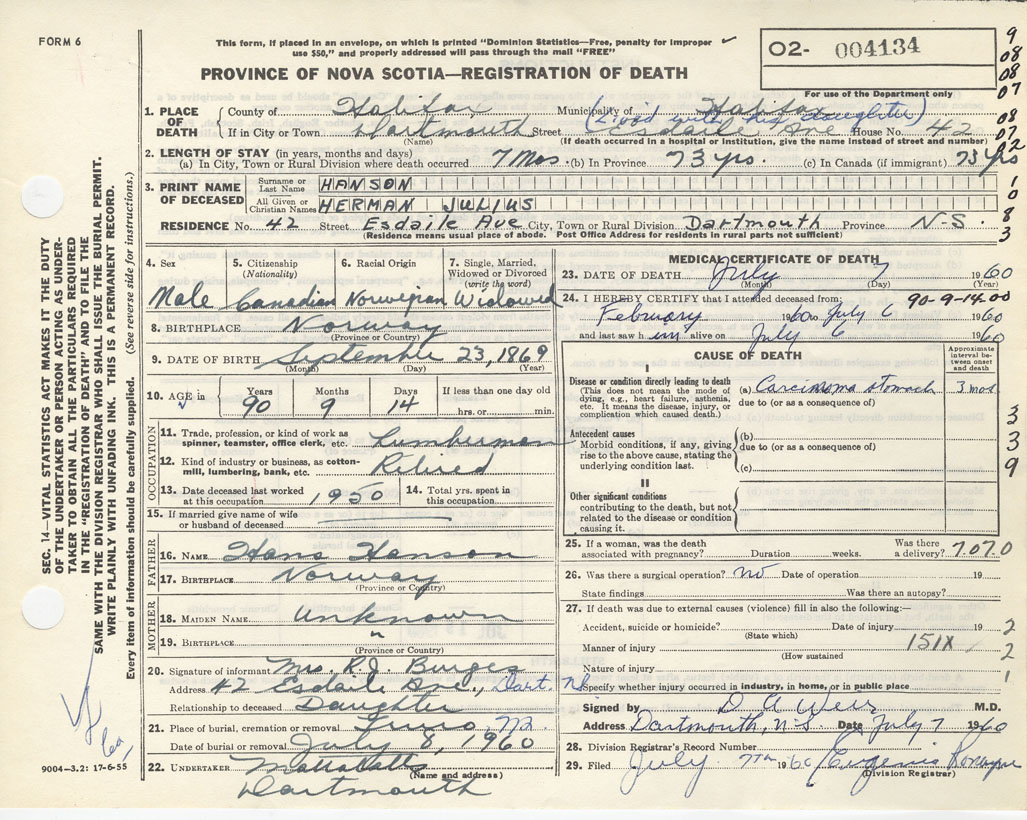 FORM 6
This form, if placed in an envelope, on which is printed "Dominion Statistics—Free, penalty for improper
use $50," and properly addressed will pass through the mail "FREE"
O2- 004134
For use of the Department only
PROVINCE OF NOVA SCOTIA—REGISTRATION OF DEATH
9
08
08
07
08
07
02
1
0
8
3
1. PLACE OF DEATH
County of Halifax Municipality of Halifax
(Lived with his daughter)
If in City or Town Dartmouth Street Esdaile Ave House No. 42
(Name) (If death occurred in a hospital or institution, give the name instead of street and number)
2. LENGTH OF STAY (in years, months and days)
(a) In City, Town or Rural Division where death occurred 7 Mos. (b) In Province 73 yrs. (c) In Canada (if immigrant) 73 yrs
3. PRINT NAME OF DECEASED
Surname or Last Name HANSON
All Given or Christian Names HERMAN JULIUS
RESIDENCE No. 42 Street Esdaile Ave City, Town or Rural Division Dartmouth Province N-S.
(Residence means usual place of abode. Post Office Address for residents in rural parts not sufficient)
4. Sex
Male
5. Citizenship
(Nationality)
Canadian
6. Racial Origin
Norwegian
7. Single, Married,
Widowed or Divorced
(write the word)
Widowed
8. BIRTHPLACE Norway
(Province or Country)
9. DATE OF BIRTH September 23, 1869
(Month) (Day) (Year)
10. AGE in
Years 90
Months 9
Days 14
If less than one day old
hrs. or min.
OCCUPATION
11. Trade, profession, or kind of work as
spinner, teamster, office clerk, etc. Lumberman
12. Kind of industry or business, as cotton-
mill, lumbering, bank, etc. Retired
13. Date deceased last worked
at this occupation 1950
14. Total yrs. spent in
this occupation
15. If married give name of wife
or husband of deceased
FATHER
16. NAME Hans Hanson
17. BIRTHPLACE Norway
(Province or Country)
MOTHER
18. MAIDEN NAME Unknown
19. BIRTHPLACE "
(Province or Country)
20. Signature of informant Mrs. R.J. Burges
Address 42 Esdaile Ave., Dart. NS
Relationship to deceased Daughter
21. Place of burial, cremation or removal Truro, NS
Date of burial or removal July 8, 1960
22. UNDERTAKER Mattatalls
(Name and address)
Dartmouth
MEDICAL CERTIFICATE OF DEATH
23. DATE OF DEATH July 7 1960
(Month) (Day)
24. I HEREBY CERTIFY that I attended deceased from:
90-9-14.00
February 1960 to July 6 1960
and last saw him alive on July 6 1960
CAUSE OF DEATH
Approximate
interval be-
tween onset
and death
I
Disease or condition directly leading to death
(This does not mean the mode of
dying, e.g., heart failure, asthenia,
etc. It means the disease, injury, or
complication which caused death.)
(a) Carcinoma stomach 3 mos
due to (or as a consequence of)
Antecedent causes
Morbid conditions, if any, giving
rise to the above cause, stating the
underlying condition last.
(b)
due to (or as a consequence of)
(c)
II
Other significant conditions
contributing to the death, but not
related to the disease or condition
causing it.
3
3
9
25. If a woman, was the death
associated with pregnancy? Duration weeks. Was there
a delivery? 7.07.0
26. Was there a surgical operation? no Date of operation 19
State findings Was there an autopsy?
27. If death was due to external causes (violence) fill in also the following:—
Accident, suicide or homicide? Date of injury 19
(State which)
Manner of injury 151X
(How sustained
Nature of injury
Specify whether injury occurred in industry, in home, or in public place
2
2
1
Signed by D A Weir M.D.
Address Dartmouth, N-S. Date July 7 1960
28. Division Registrar's Record Number
29. Filed July 7th 1960 Eugenie
(Division Registrar)
SEC. 14—VITAL STATISTICS ACT MAKES IT THE DUTY
OF THE UNDERTAKER OR PERSON ACTING AS UNDER-
TAKER TO OBTAIN ALL THE PARTICULARS REQUIRED
IN THE "REGISTRATION OF DEATH" AND TO FILE THE
SAME WITH THE DIVISION REGISTRAR WHO SHALL ISSUE THE BURIAL PERMIT.
WRITE PLAINLY WITH UNFADING INK. THIS IS A PERMANENT RECORD.
Every item of information should be carefully supplied. (See reverse side for instructions.)
9004—3.2: 17-6-55